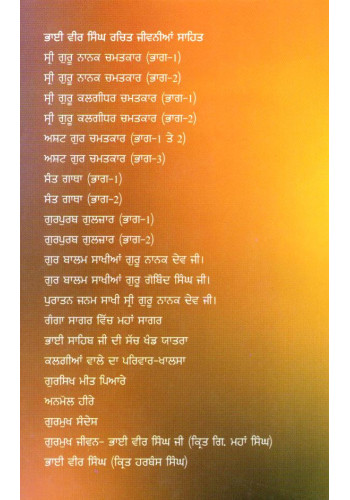 ਭਾਈ ਵੀਰ ਸਿੰਘ ਰਚਿਤ ਜੀਵਨੀਆਂ ਸਾਹਿਤ
ਸ੍ਰੀ ਗੁਰੂ ਨਾਨਕ ਚਮਤਕਾਰ (ਭਾਗ-1)
ਸ੍ਰੀ ਗੁਰੂ ਨਾਨਕ ਚਮਤਕਾਰ (ਭਾਗ-2)
ਸ੍ਰੀ ਗੁਰੂ ਕਲਗੀਧਰ ਚਮਤਕਾਰ (ਭਾਗ-1)
ਸ੍ਰੀ ਗੁਰੂ ਕਲਗੀਧਰ ਚਮਤਕਾਰ (ਭਾਗ-2)
ਅਸ਼ਟ ਗੁਰ ਚਮਤਕਾਰ (ਭਾਗ-1 ਤੇ 2)
ਅਸ਼ਟ ਗੁਰ ਚਮਤਕਾਰ (ਭਾਗ-3)
ਸੰਤ ਗਾਥਾ (ਭਾਗ-1)
ਸੰਤ ਗਾਥਾ (ਭਾਗ-2)
ਗੁਰਪੁਰਬ ਗੁਲਜ਼ਾਰ (ਭਾਗ-1)
ਗੁਰਪੁਰਬ ਗੁਲਜ਼ਾਰ (ਭਾਗ-2)
ਗੁਰ ਬਾਲਮ ਸਾਖੀਆਂ ਗੁਰੂ ਨਾਨਕ ਦੇਵ ਜੀ।
ਗੁਰ ਬਾਲਮ ਸਾਖੀਆਂ ਗੁਰੂ ਗੋਬਿੰਦ ਸਿੰਘ ਜੀ।
ਪੁਰਾਤਨ ਜਨਮ ਸਾਖੀ ਸ੍ਰੀ ਗੁਰੂ ਨਾਨਕ ਦੇਵ ਜੀ।
ਗੰਗਾ ਸਾਗਰ ਵਿੱਚ ਮਹਾਂ ਸਾਗਰ
ਭਾਈ ਸਾਹਿਬ ਜੀ ਦੀ ਸੱਚ ਖੰਡ ਯਾਤਰਾ
ਕਲਗੀਆਂ ਵਾਲੇ ਦਾ ਪਰਿਵਾਰ-ਖਾਲਸਾ
ਗੁਰਸਿਖ ਮੀਤ ਪਿਆਰੇ
ਅਨਮੋਲ ਹੀਰੇ
ਗੁਰਮੁਖ ਸੰਦੇਸ਼
ਗੁਰਮੁਖ ਜੀਵਨ- ਭਾਈ ਵੀਰ ਸਿੰਘ ਜੀ (ਕ੍ਰਿਤ ਗਿ. ਮਹਾਂ ਸਿੰਘ)
ਭਾਈ ਵੀਰ ਸਿੰਘ (ਕ੍ਰਿਤ ਹਰਬੰਸ ਸਿੰਘ)